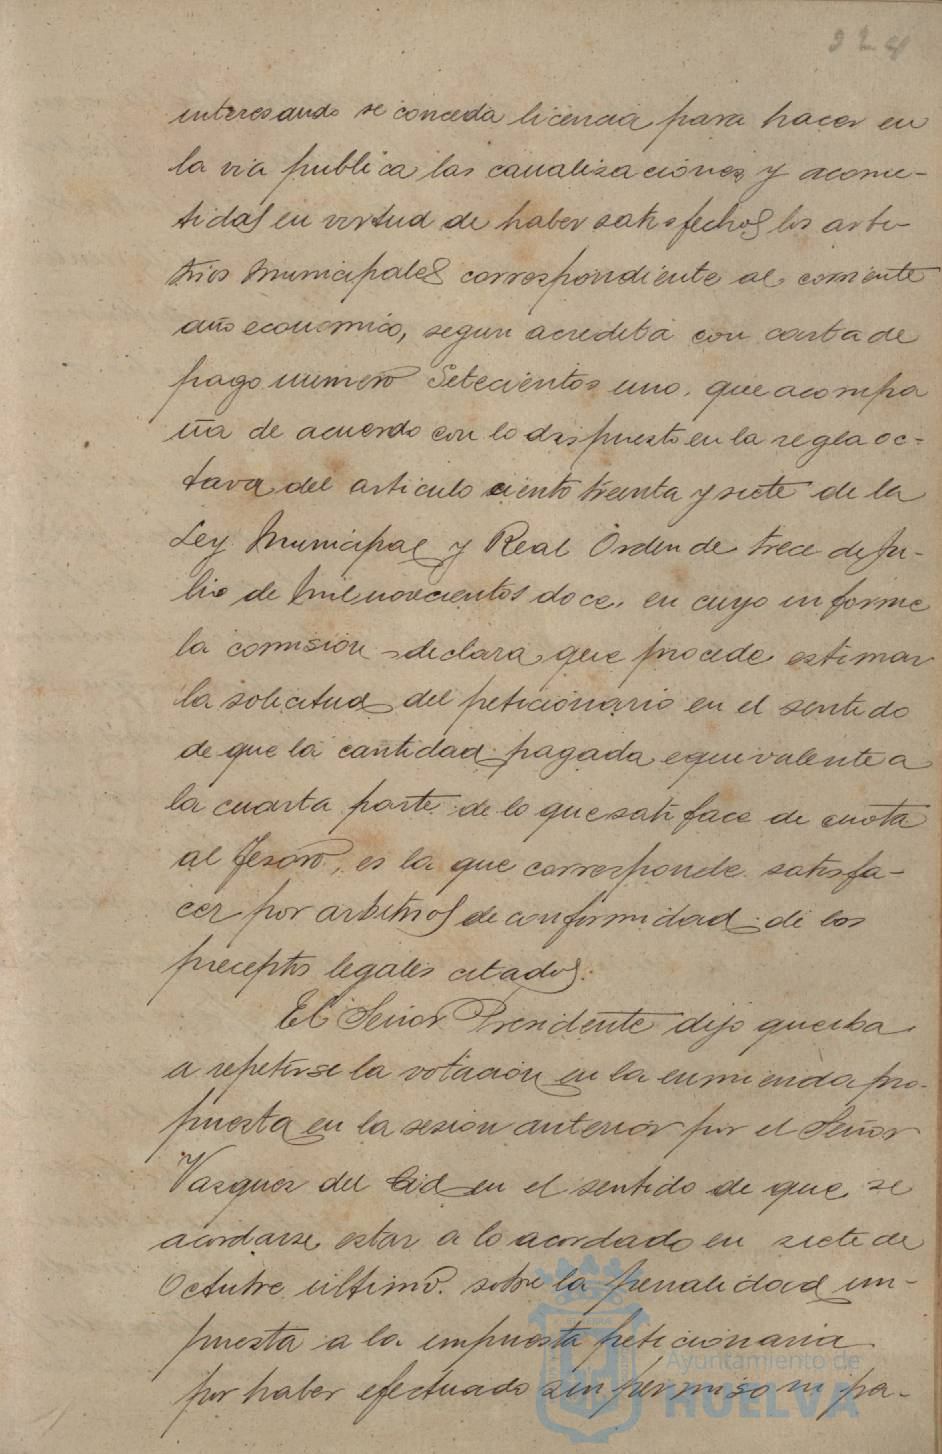 324
interesando se conceda licencia para hacer en
la via publica las canalizaciones y acome-
tidas en virtud de haber satisfechos los arbi-
trios Municipales correspondiente al corriente
año economico, segun acredita con carta de
pago numero Setecientos uno, que acompa
ña de acuerdo con lo dispuesto en la regla oc-
tava del articulo ciento treinta y siete de la
Ley Municipal y Real Orden de trece de Ju-
lio de Mil novecientos doce, en cuyo informe
la comision declara que procede estimar
la solicitud del peticionario en el sentido
de que la cantidad pagada equivalente a
la cuarta parte de lo que satisface de cuota
al Tesoro, es la que corresponde satisfa-
cer por arbitrios de conformidad de los
preceptos legales citados.
El Señor Presidente dijo que iba
a repetirse la votacion en la enmienda pro-
puesta en la sesion anterior por el Señor
Vazquez del Cid en el sentido de que se
acordarse estar a lo acordado en siete de
Octubre ultimo. sobre la penalidad im-
puesta a la empresta peticionaria
por haber efectuado sin permiso ni pa-
Ayuntamiento de
HUELVA